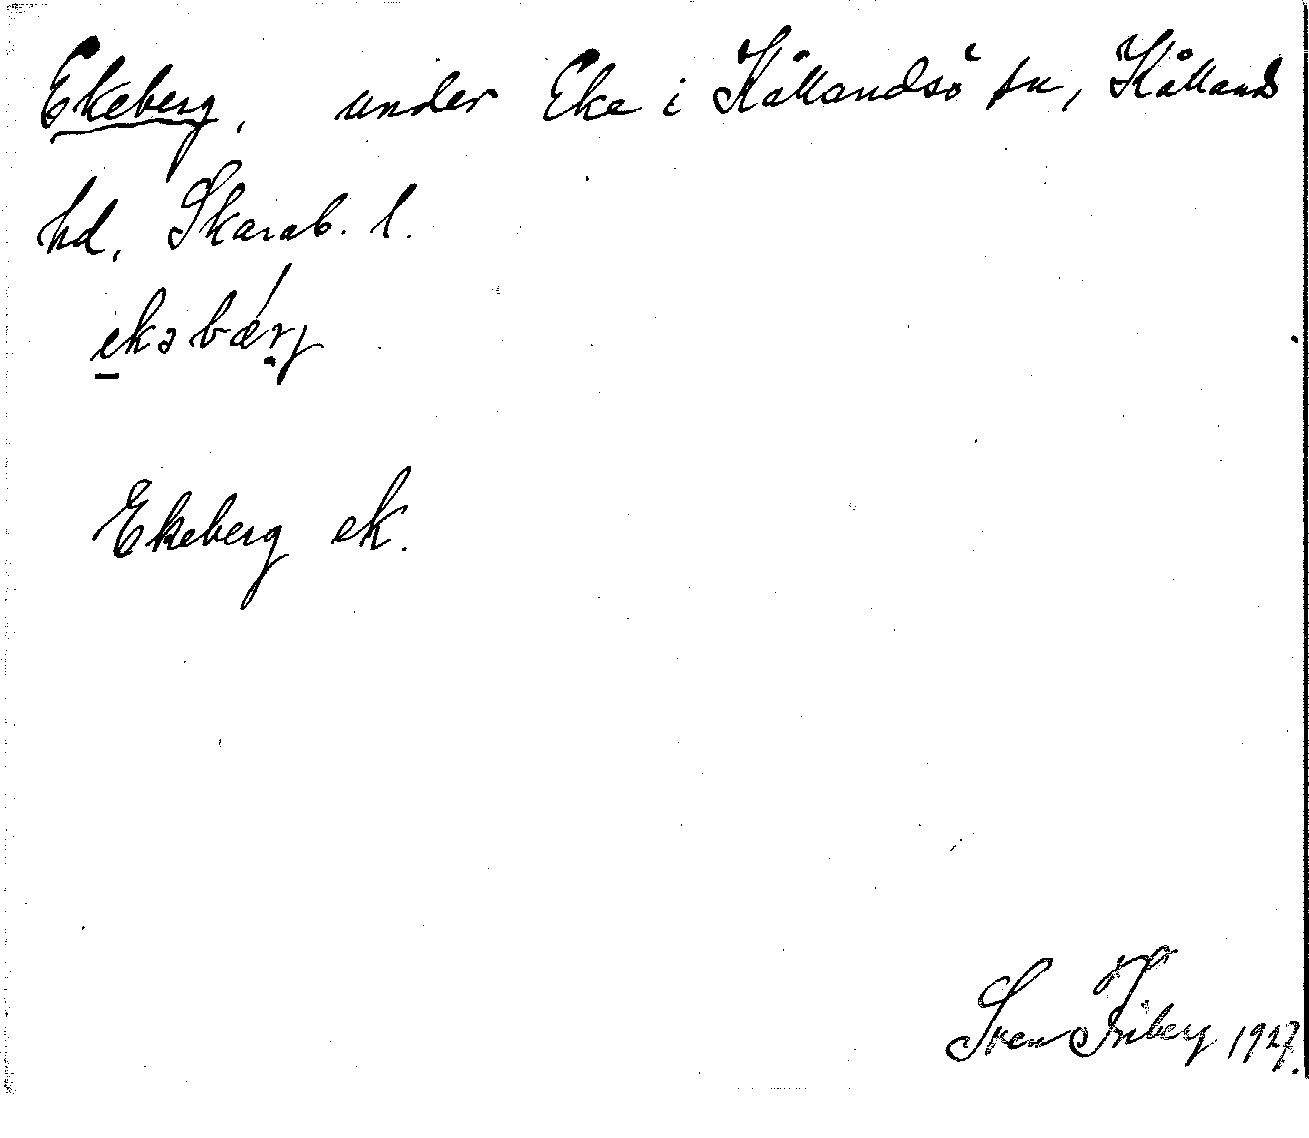 Ekeberg, under Eke i Kållandsö sn, Kållands
hd. Skarab. l.
ekəbærj
Ekeberg ek.
Sven Friberg 1927.